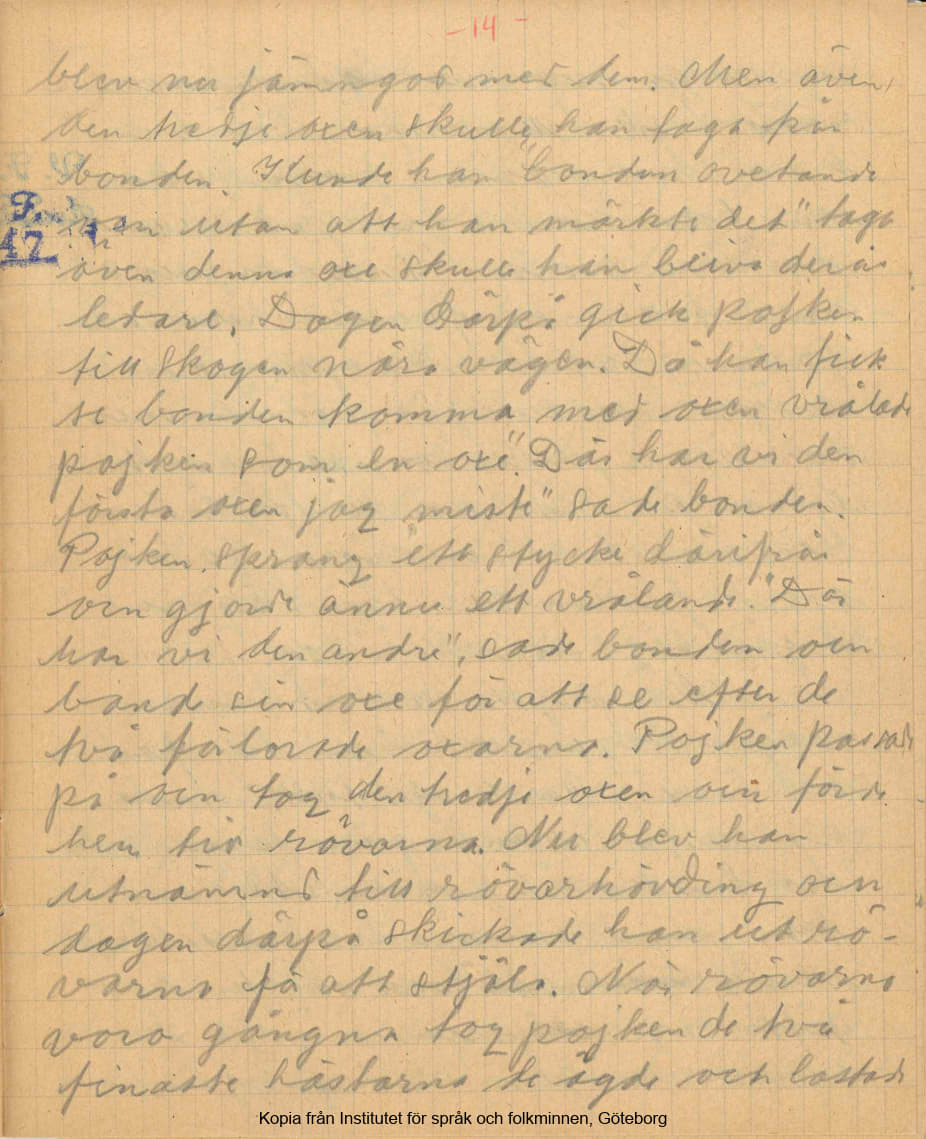 -14-
blev nu jämngod med dem. Men även
den tredje oxen skulle han taga från
bonden. Kunde han "bonden ovetande
utan att han märkte det" taga
även denna oxe skulle han bliva deras
ledare. Dagen därpå gick pojken
till skogen nära vägen. Då han fick
se bonden komma med oxen vrålade
pojken som en oxe. "Där har vi den
första oxen jag miste" sade bonden.
Pojken sprang ett stycke därifrån
och gjorde ännu ett vrålande. "Där
har vi den andre", sade bonden och
band sin oxe för att se efter de
två förlorade oxarna. Pojken passade
på och tog den tredje oxen och förde
hem till rövarna. Nu blev han
utnämnd till rövarhövding och
dagen därpå skickade han ut rö-
varna få att stjäla. När rövarna
voro gångna tog pojken de två
finaste hästarna de ägde och lastade
47
Kopia från Institutet för språk och folkminnen, Göteborg